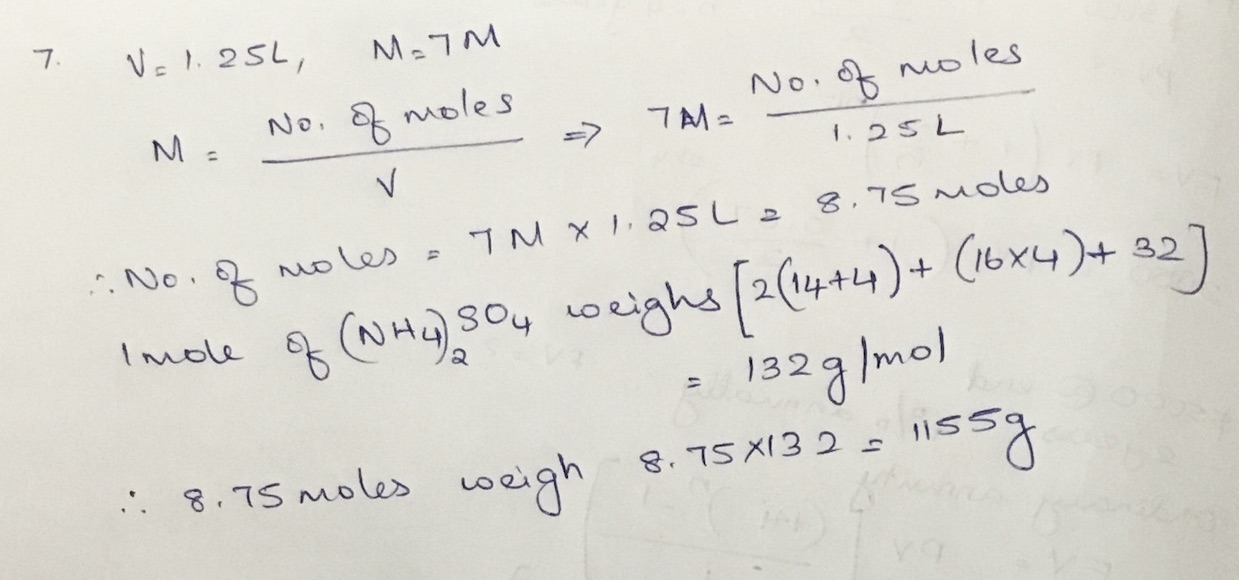 7. V = 1.25L, M = 7M
M = No. of moles / V ⇒ 7M = No. of moles / 1.25L
∴ No. of moles = 7M × 1.25L = 8.75 moles
1 mole of (NH4)2SO4 weighs [2(14+4) + (16×4) + 32]
= 132g/mol
∴ 8.75 moles weigh 8.75×132 = 1155g